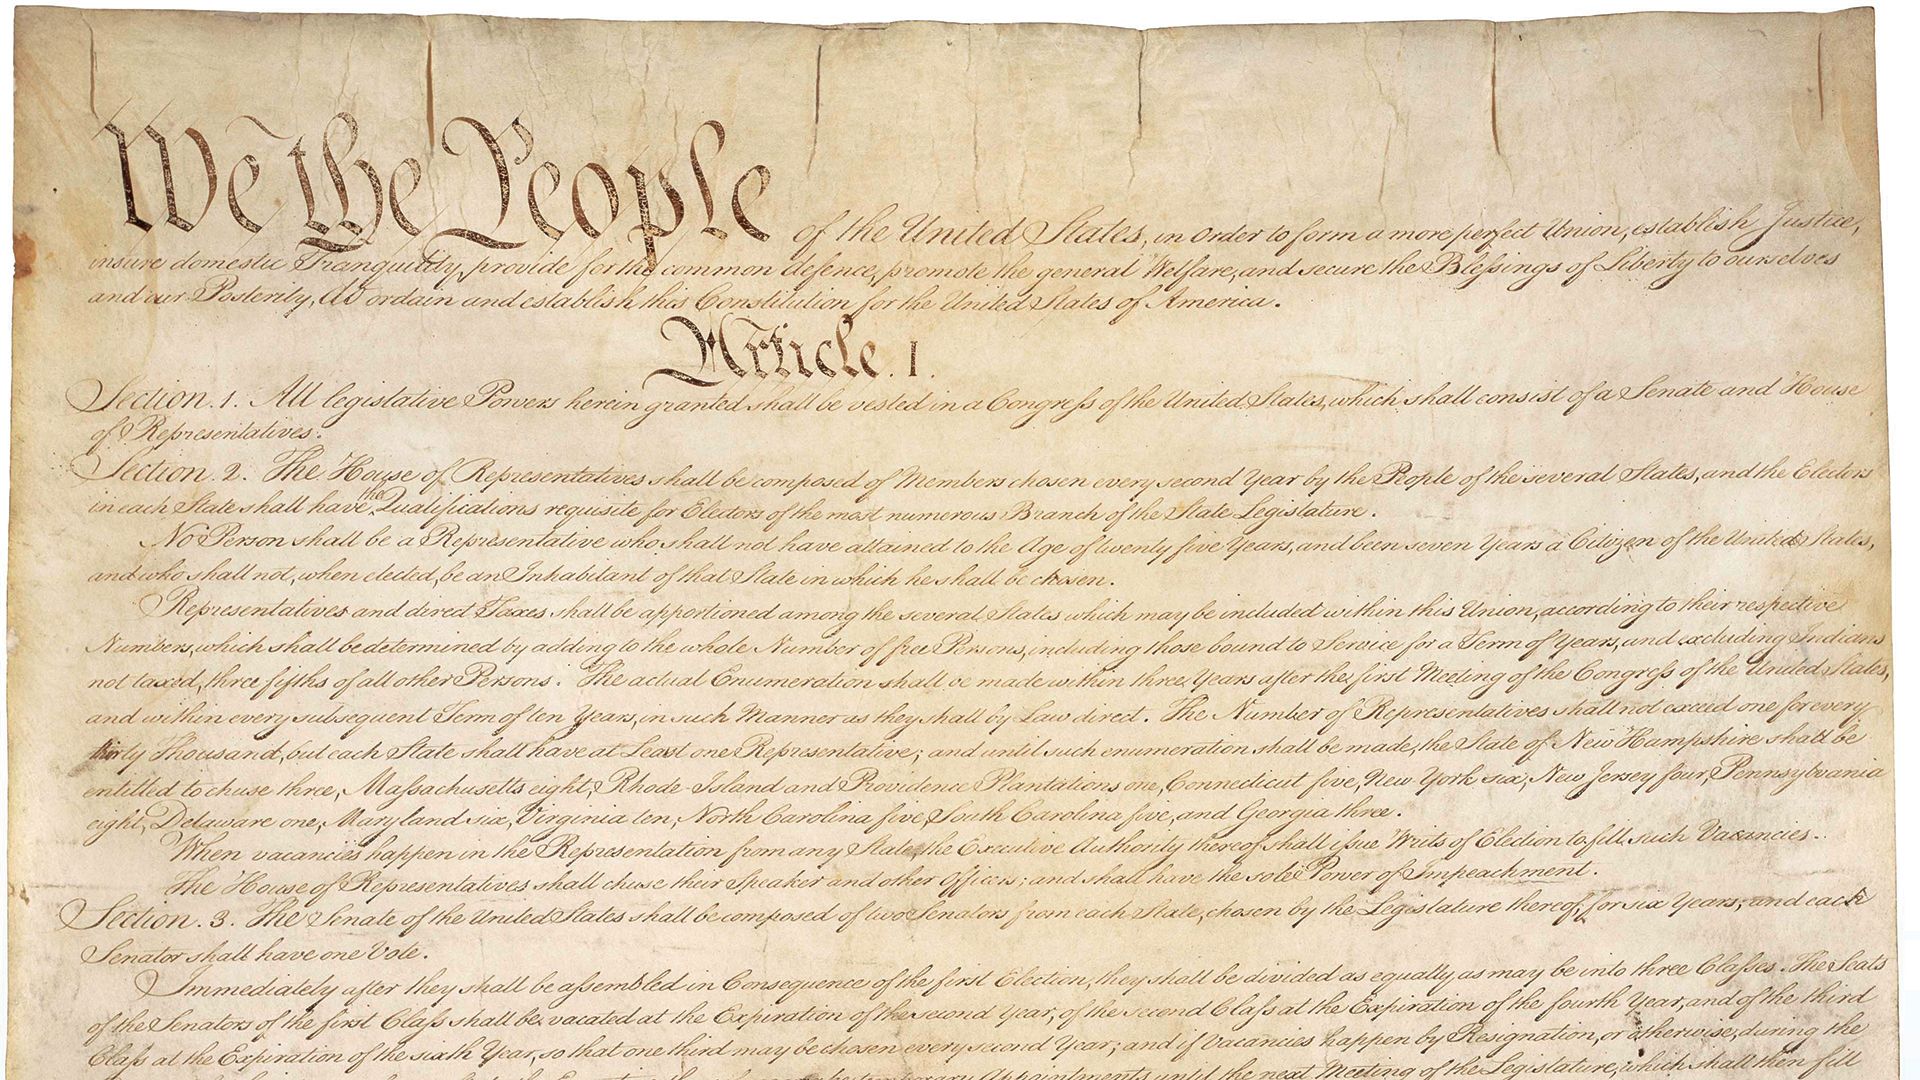 We the People of the United States, in Order to form a more perfect Union, establish Justice,
insure domestic Tranquility, provide for the common defence, promote the general Welfare, and secure the Blessings of Liberty to ourselves
and our Posterity, do ordain and establish this Constitution for the United States of America.
Article. I.
Section. 1. All legislative Powers herein granted shall be vested in a Congress of the United States, which shall consist of a Senate and House
of Representatives.
Section. 2. The House of Representatives shall be composed of Members chosen every second Year by the People of the several States, and the Electors
in each State shall have the Qualifications requisite for Electors of the most numerous Branch of the State Legislature.
No Person shall be a Representative who shall not have attained to the Age of twenty five Years, and been seven Years a Citizen of the United States,
and who shall not, when elected, be an Inhabitant of that State in which he shall be chosen.
Representatives and direct Taxes shall be apportioned among the several States which may be included within this Union, according to their respective
Numbers, which shall be determined by adding to the whole Number of free Persons, including those bound to Service for a Term of Years, and excluding Indians
not taxed, three fifths of all other Persons. The actual Enumeration shall be made within three Years after the first Meeting of the Congress of the United States,
and within every subsequent Term of ten Years, in such Manner as they shall by Law direct. The Number of Representatives shall not exceed one for every
thirty Thousand, but each State shall have at Least one Representative; and until such enumeration shall be made, the State of New Hampshire shall be
entitled to chuse three, Massachusetts eight, Rhode-Island and Providence Plantations one, Connecticut five, New York six, New Jersey four, Pennsylvania
eight, Delaware one, Maryland six, Virginia ten, North Carolina five, South Carolina five, and Georgia three.
When vacancies happen in the Representation from any State, the Executive Authority thereof shall issue Writs of Election to fill such Vacancies.
The House of Representatives shall chuse their Speaker and other Officers; and shall have the sole Power of Impeachment.
Section. 3. The Senate of the United States shall be composed of two Senators from each State, chosen by the Legislature thereof, for six Years; and each
Senator shall have one Vote.
Immediately after they shall be assembled in Consequence of the first Election, they shall be divided as equally as may be into three Classes. The Seats
of the Senators of the first Class shall be vacated at the Expiration of the second Year, of the second Class at the Expiration of the fourth Year, and of the third
Class at the Expiration of the sixth Year, so that one third may be chosen every second Year; and if Vacancies happen by Resignation, or otherwise, during the
Appointments until the next Meeting of the Legislature, which shall then fill